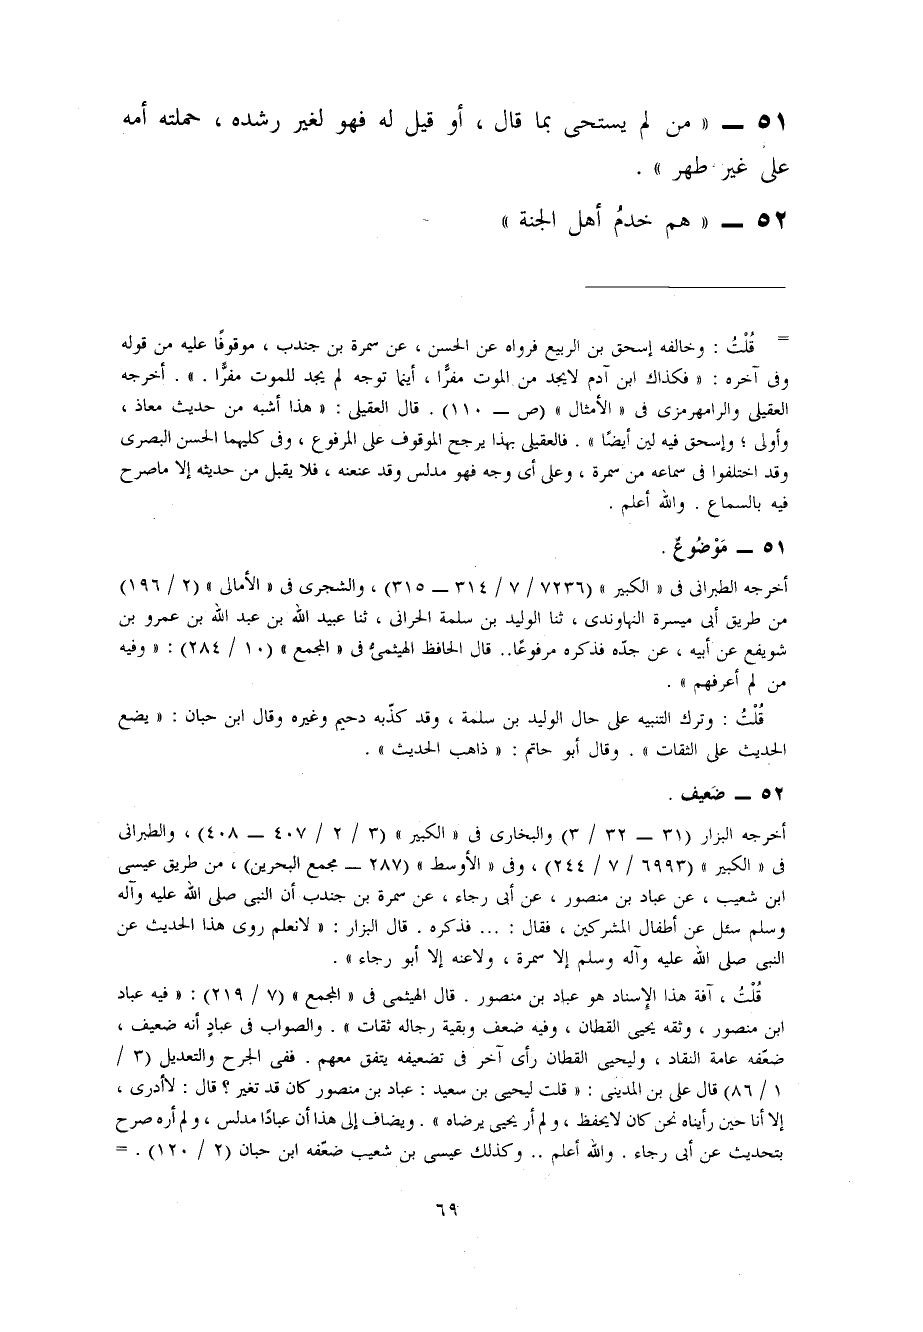 ٥١ ــ « من لم يستحى بما قال ، أو قيل له فهو لغير رشده ، حملته أمه
على غير طهر » .
٥٢ ــ « هم خدمُ أهل الجنة »
= قُلْتُ : وخالفه إسحق بن الربيع فرواه عن الحسن ، عن سمرة بن جندب ، موقوفًا عليه من قوله
وفى آخره : « فكذاك ابن آدم لايجد من الموت مفرًّا ، أينما توجه لم يجد للموت مفرًّا . » . أخرجه
العقيلى والرامهرمزى فى « الأمثال » (ص ــ ١١٠) . قال العقيلى : « هذا أشبه من حديث معاذ ،
وأولى ؛ وإسحق فيه لين أيضًا » . فالعقيلى بهذا يرجح الموقوف على المرفوع ، وفى كليهما الحسن البصرى
وقد اختلفوا فى سماعه من سمرة ، وعلى أى وجه فهو مدلس وقد عنعنه ، فلا يقبل من حديثه إلا ماصرح
فيه بالسماع . والله أعلم .
٥١ ــ مَوْضُوعٌ .
أخرجه الطبرانى فى « الكبير » (٧٢٣٦ / ٧ / ٣١٤ ــ ٣١٥) ، والشجرى فى « الأمالى » (٢ / ١٩٦)
من طريق أبى ميسرة النهاوندى ، ثنا الوليد بن سلمة الحرانى ، ثنا عبيد الله بن عبد الله بن عمرو بن
شويفع عن أبيه ، عن جدّه فذكره مرفوعًا.. قال الحافظ الهيثمىُّ فى « المجمع » (١٠ / ٢٨٤) : « وفيه
من لم أعرفهم » .
قُلْتُ : وترك التنبيه على حال الوليد بن سلمة ، وقد كذّبه دحيم وغيره وقال ابن حبان : « يضع
الحديث على الثقات » . وقال أبو حاتم : « ذاهب الحديث » .
٥٢ ــ ضَعيف .
أخرجه البزار (٣١ ــ ٣٢ / ٣) والبخارى فى « الكبير » (٣ / ٢ / ٤٠٧ ــ ٤٠٨) ، والطبرانى
فى « الكبير » (٦٩٩٣ / ٧ / ٢٤٤) ، وفى « الأوسط » (٢٨٧ ــ مجمع البحرين) ، من طريق عيسى
ابن شعيب ، عن عباد بن منصور ، عن أبى رجاء ، عن سمرة بن جندب أن النبى صلى الله عليه وآله
وسلم سئل عن أطفال المشركين ، فقال : ... فذكره . قال البزار : « لانعلم روى هذا الحديث عن
النبى صلى الله عليه وآله وسلم إلا سمرة ، ولاعنه إلا أبو رجاء » .
قُلْتُ ، آفة هذا الإسناد هو عباد بن منصور . قال الهيثمى فى « المجمع » (٧ / ٢١٩) : « فيه عباد
ابن منصور ، وثقه يحيى القطان ، وفيه ضعف وبقية رجاله ثقات » . والصواب فى عبادٍ أنه ضعيف ،
ضعّفه عامة النقاد ، وليحيى القطان رأى آخر فى تضعيفه يتفق معهم . ففى الجرح والتعديل (٣ /
١ / ٨٦) قال على بن المدينى : « قلت ليحيى بن سعيد : عباد بن منصور كان قد تغير ؟ قال : لاأدرى ،
إلا أنا حين رأيناه نحن كان لايحفظ ، ولم أر يحيى يرضاه » . ويضاف إلى هذا أن عبادًا مدلس ، ولم أره صرح
بتحديث عن أبى رجاء . والله أعلم .. وكذلك عيسى بن شعيب ضعّفه ابن حبان (٢ / ١٢٠) . =
٦٩